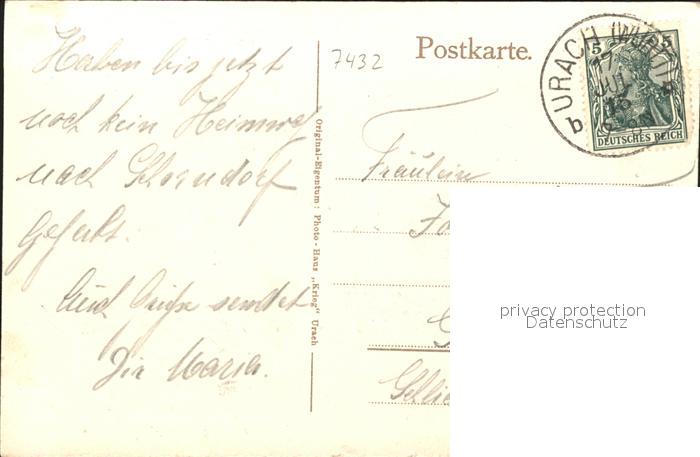 Haben bis jetzt
noch kein Heimweh
nach Schorndorf
Gehabt.
sendet
Die Maria.
Original-Eigentum: Photo-Haus „Krieg" Urach
7432
Postkarte.
URACH (WÜRTT)
17
JUL
b
5 5
DEUTSCHES REICH
Fräulein
privacy protection
Datenschutz